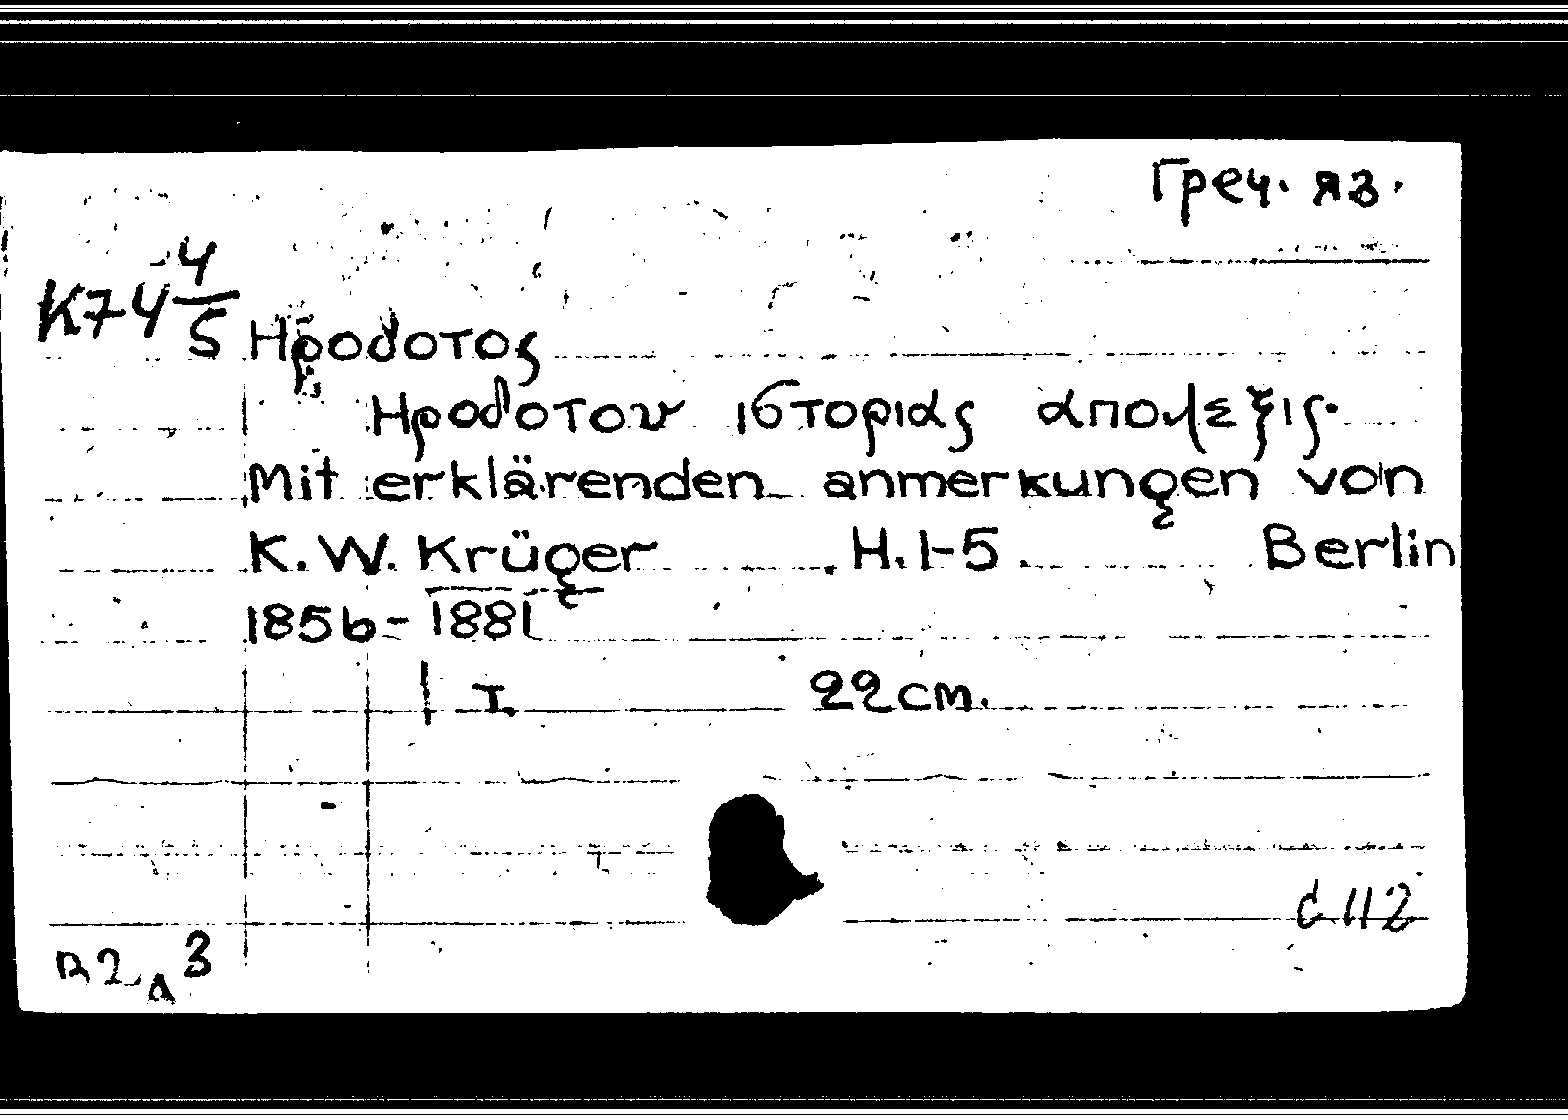 Греч. яз.
К74 4/5
Ηροδοτος
Ηροδοτου ιστοριας αποδεξις.
Mit erklärenden anmerkungen von
K. W. Krüger H. 1-5 Berlin
1856-1881
1 т. 22 cm.
с 112